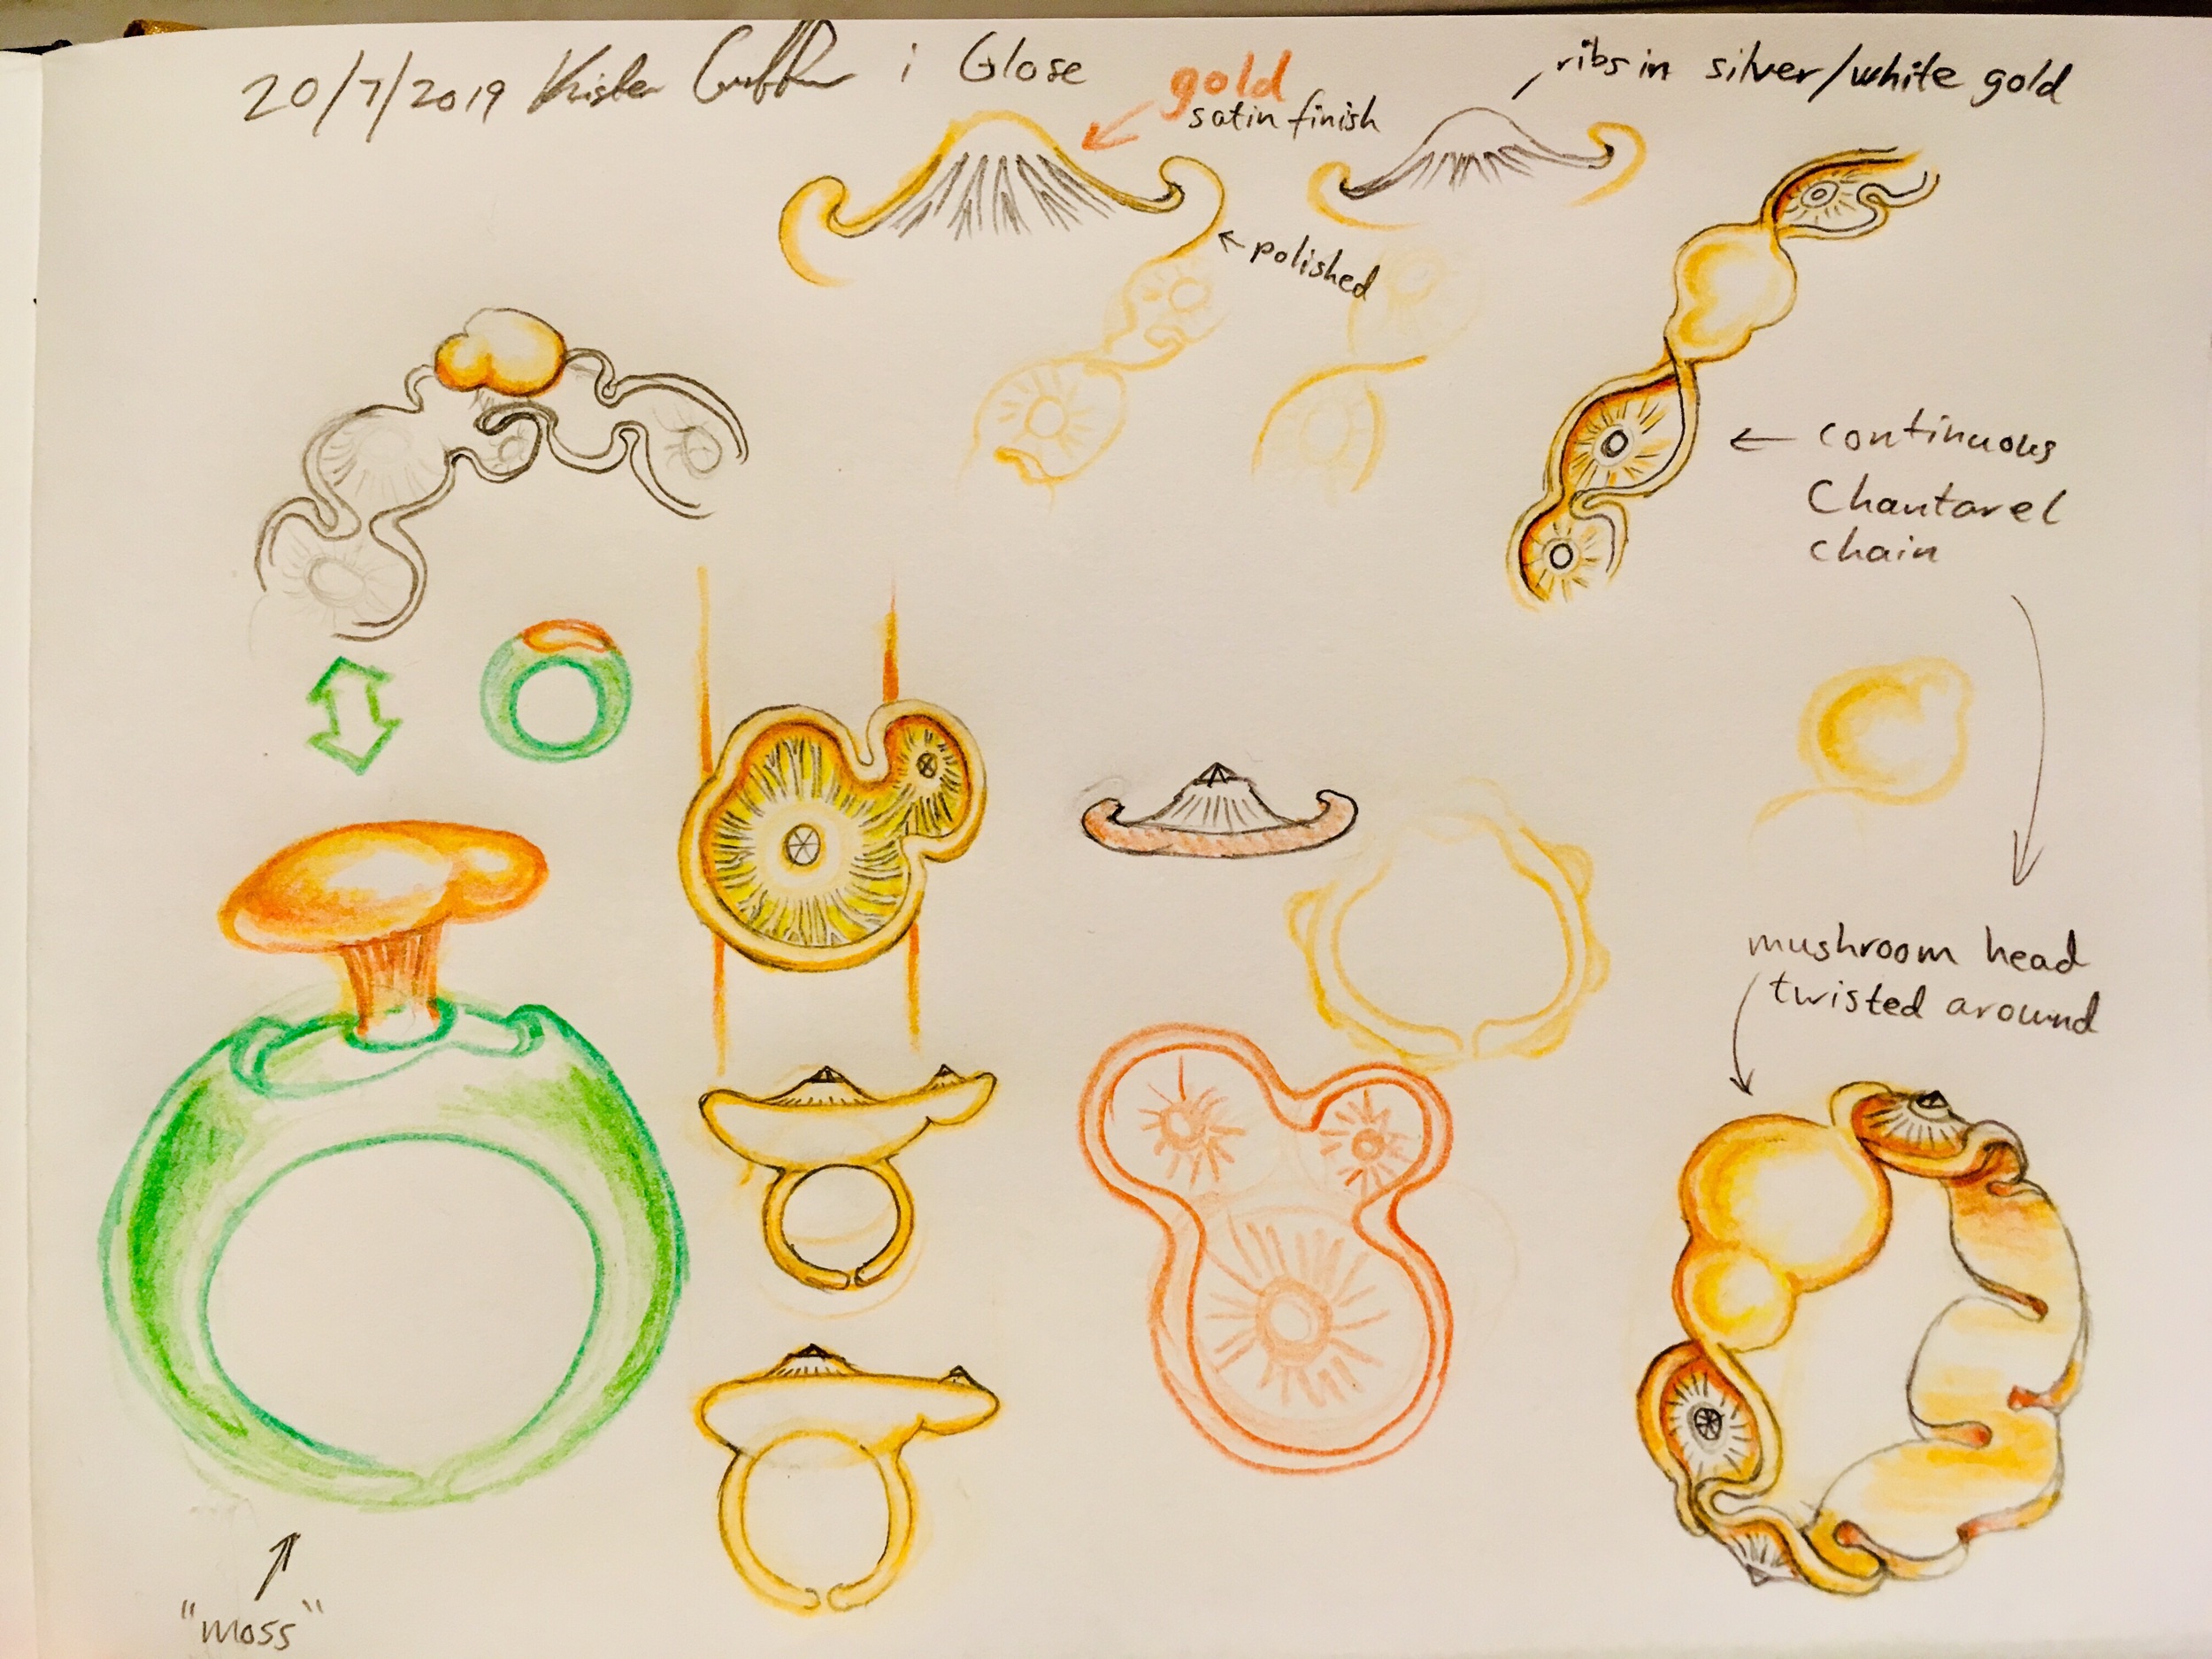 20/7/2019 i Glose
gold
satin finish
ribs in silver/white gold
polished
continuous
Chantarel
chain
mushroom head
twisted around
"moss"